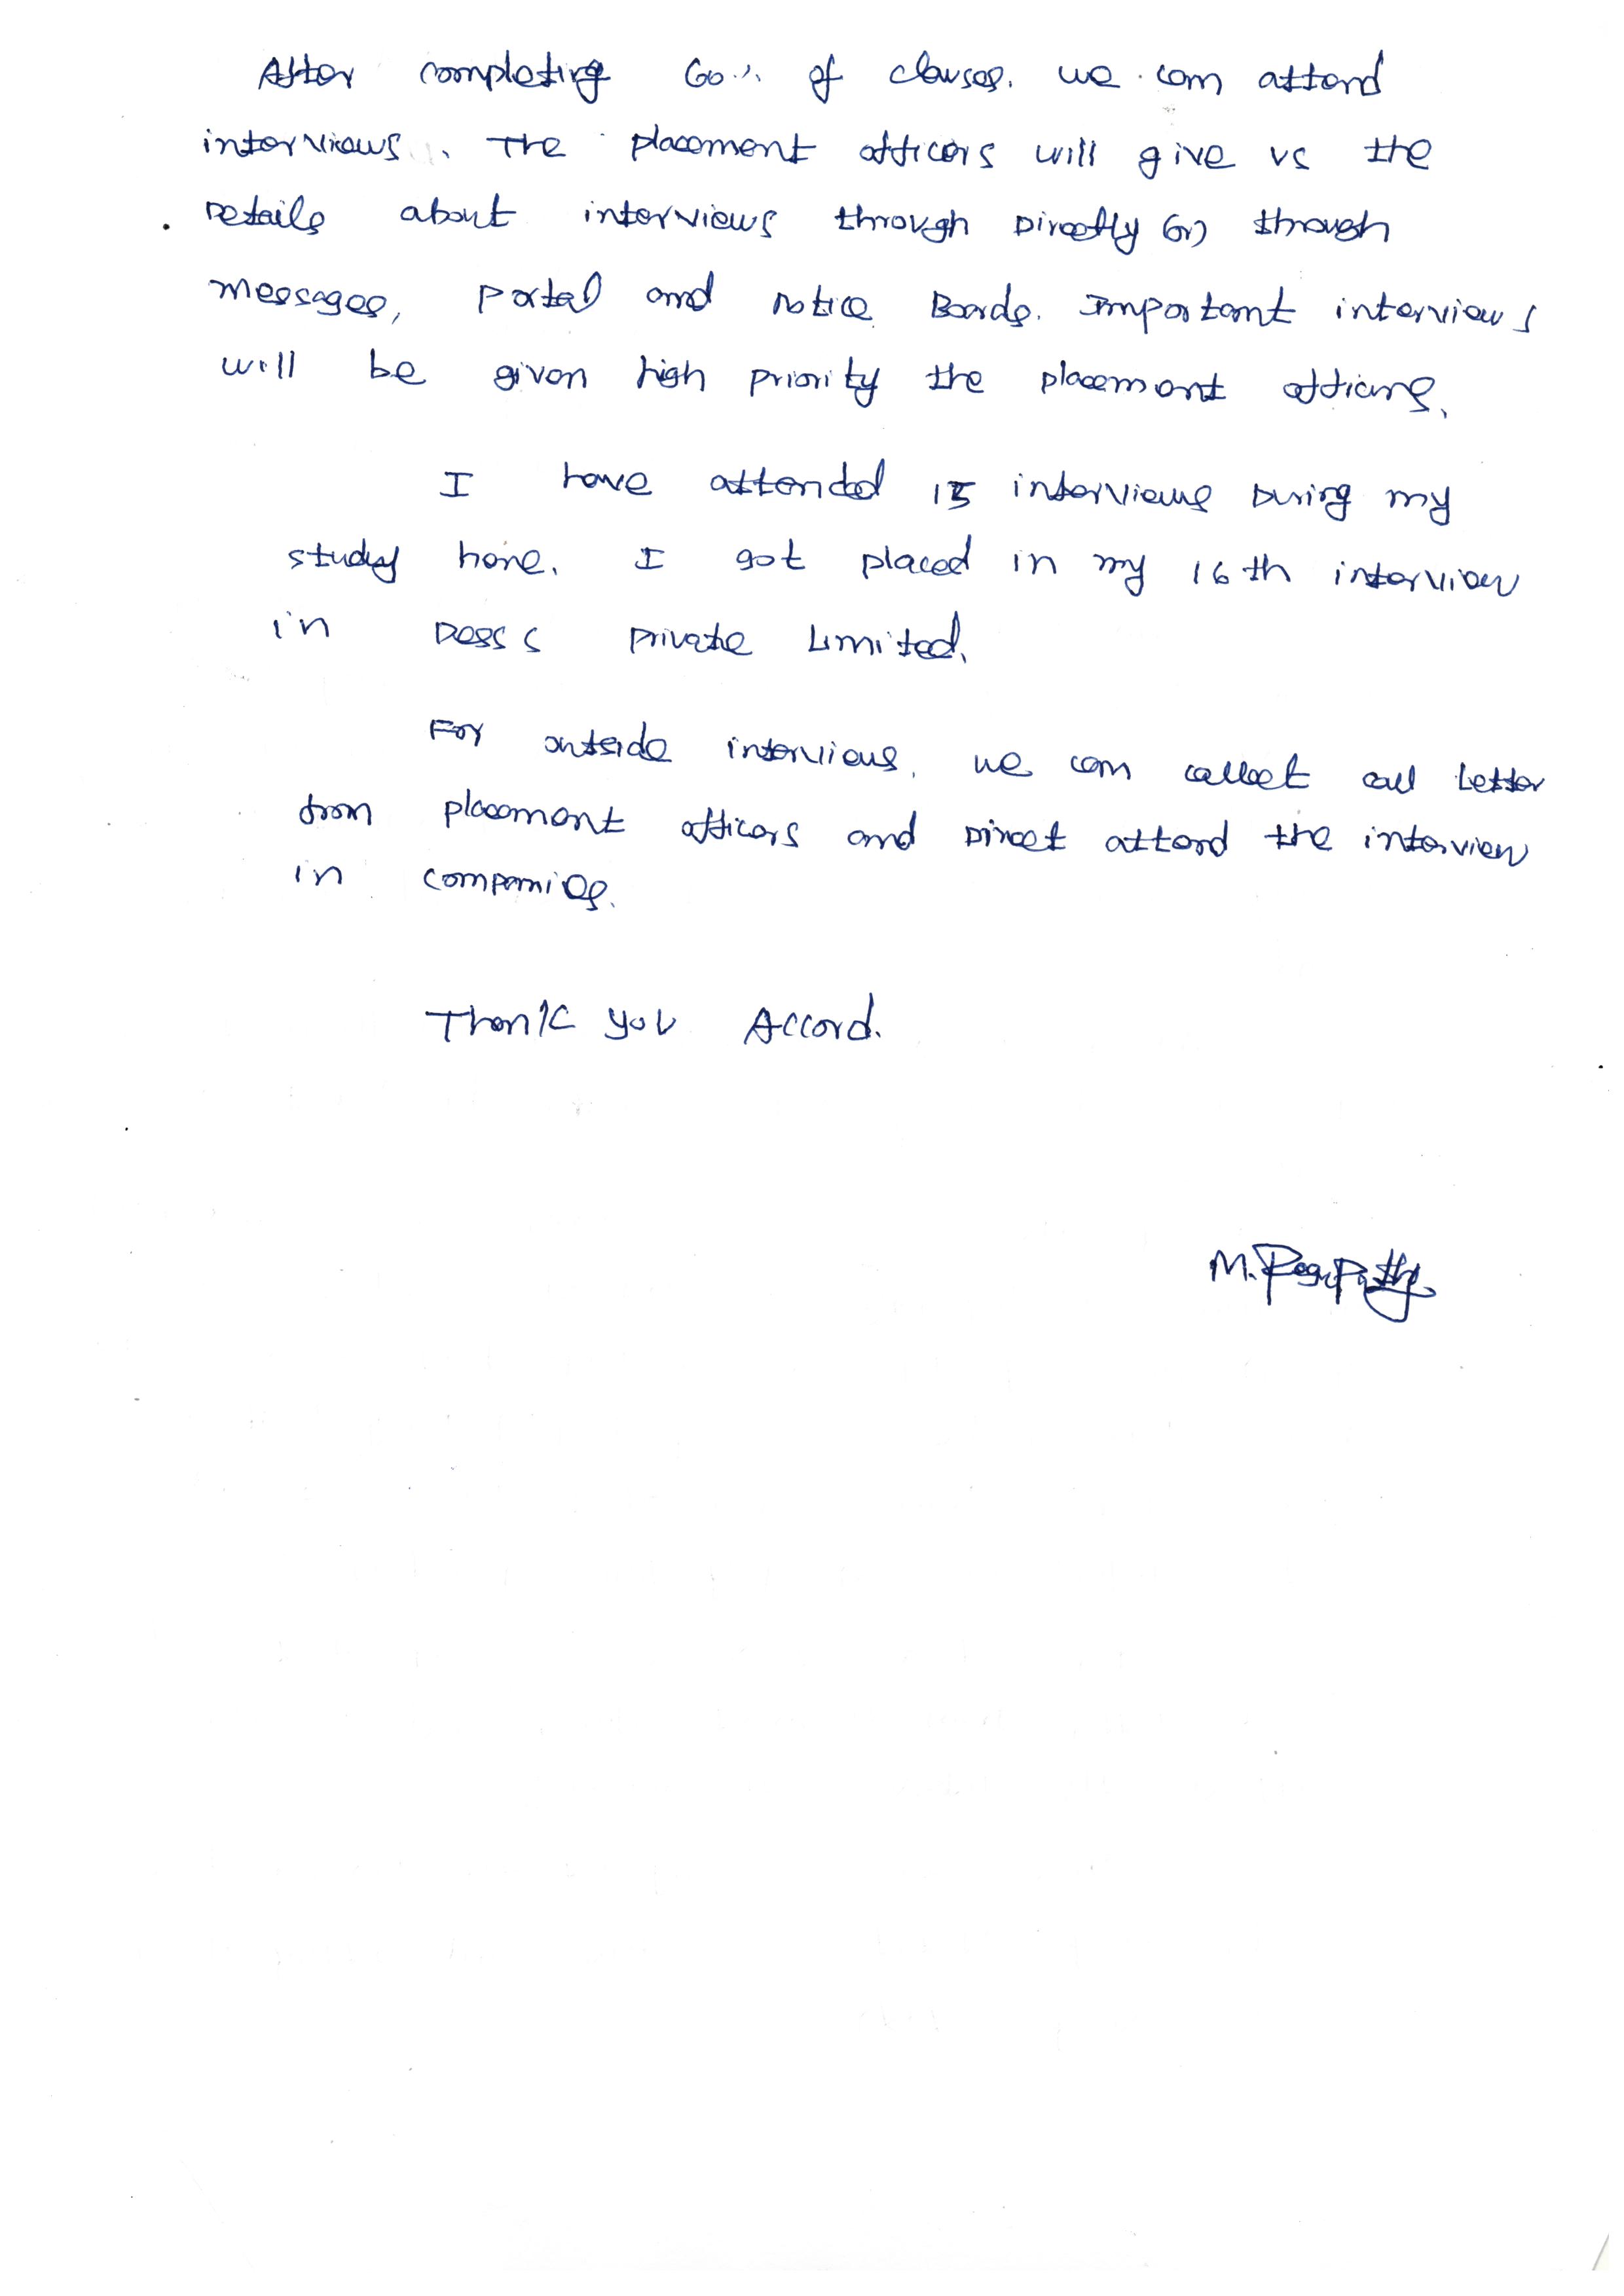 After completing 60% of classes. we can attend
interviews. The placement officers will give us the
Details about interviews through Directly (or) through
messages, portal and notice Boards. Important interviews
will be given high priority the placement officers.
I have attended 15 interviews During my
study here. I got placed in my 16th interview
in private Limited.
For outside interviews, we can collect call Letter
from placement officers and Direct attend the interview
in companies.
Thank you Accord.
M.